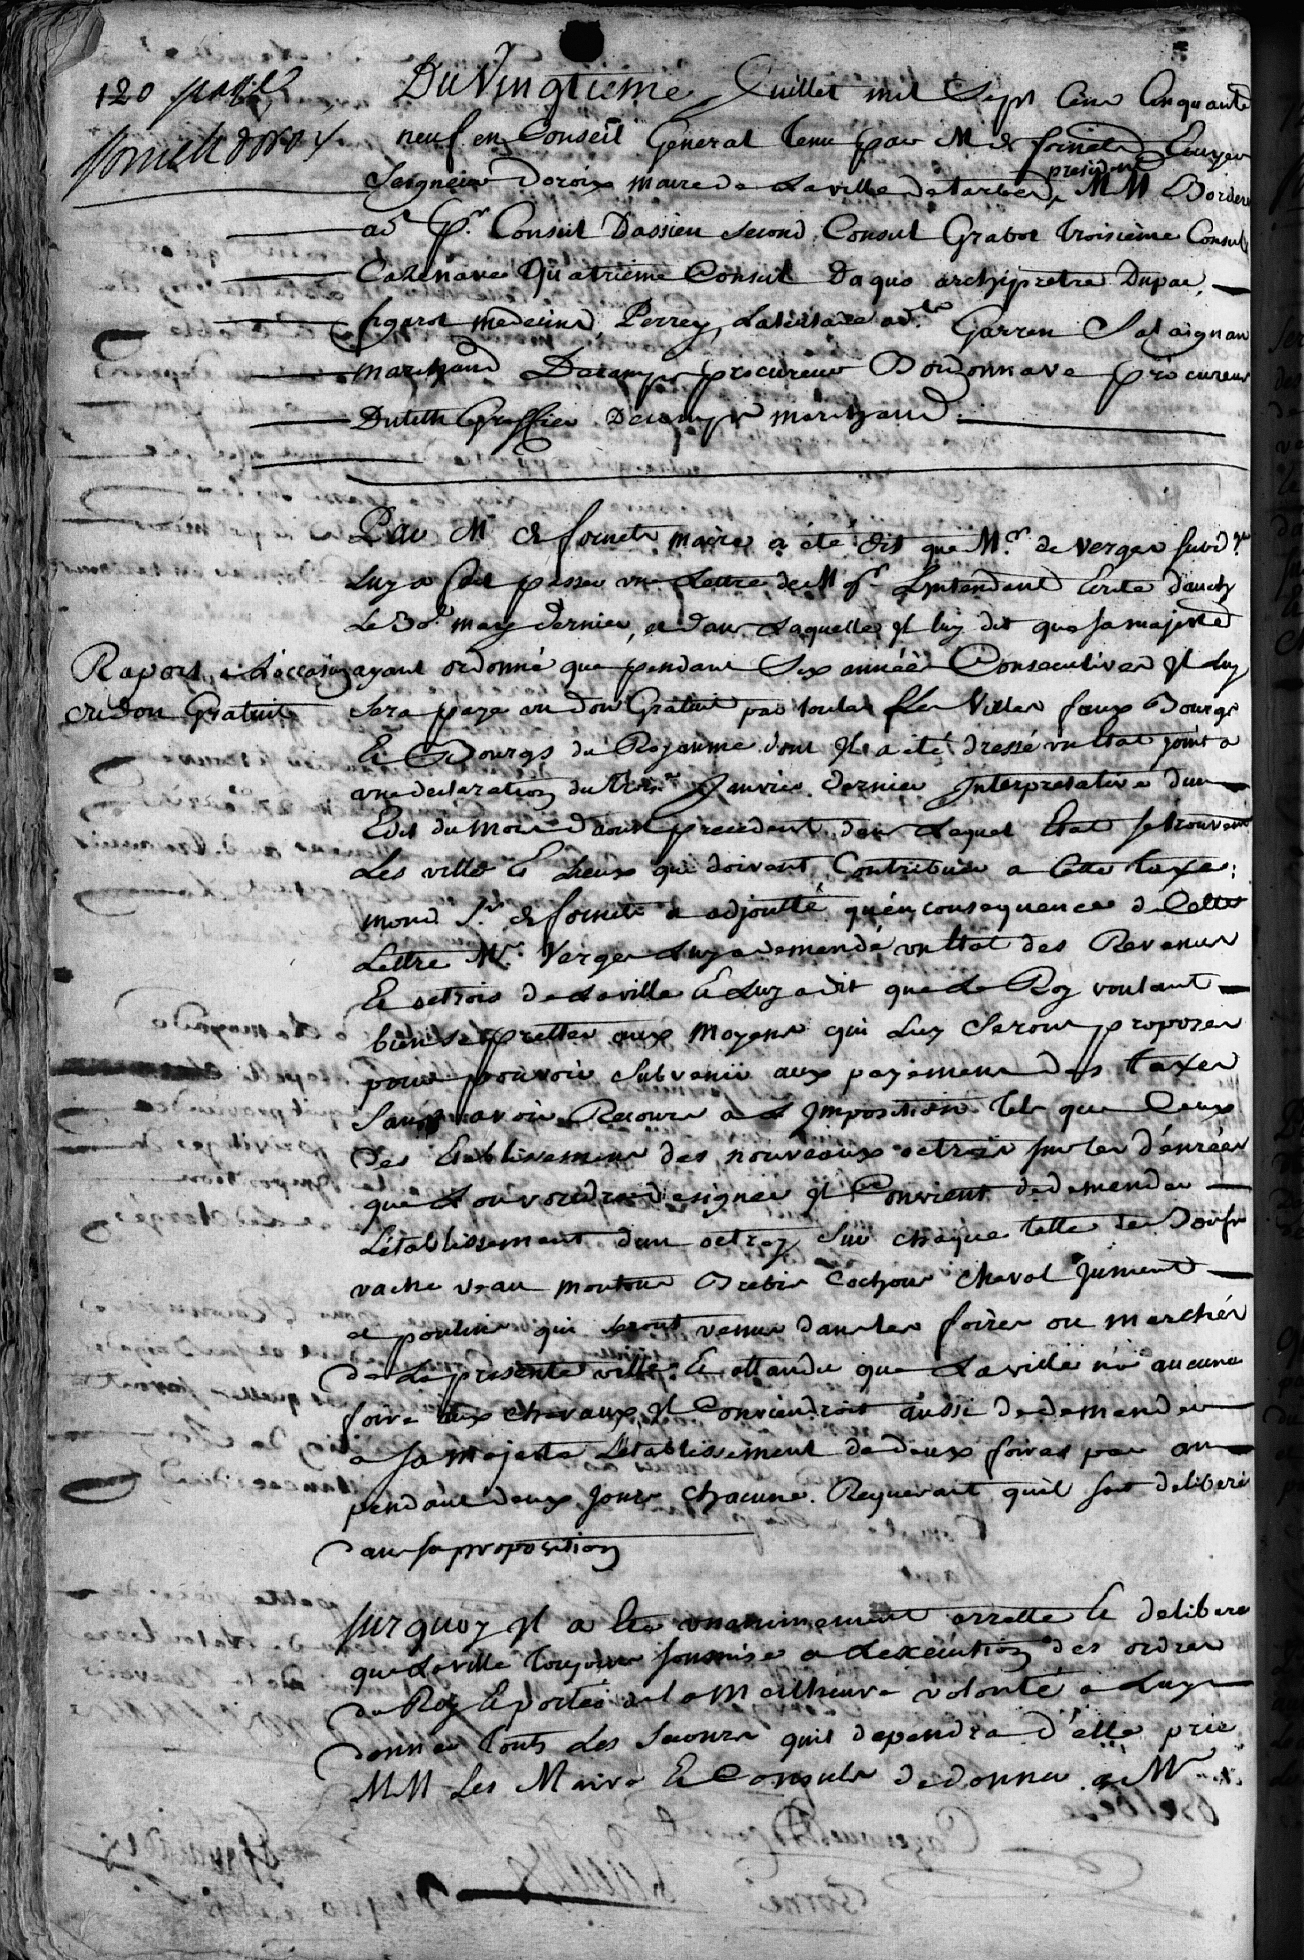 120 page
Du Vingtieme Juillet mil Sept Cens Cinquante
neuf en Conseil General tenu par M. de fornets Ecuyer
president
Seigneur doroix maire de La ville de tarbes, MM Bordere
ad. pr. Consul Dassieu Second Consul Grabot troisieme Consul
Cazenave Quatrieme Consul Daquo archipretre Dupac,
figarol medecin, Perrey, ad.ts Garren
marchand Decamps procureur Bordonnave procureur
Duteth Greffier Decamps marchand.
Par M. de fornets maire a été dit que Mr. de Verges subd.
Luy a fait passer une Lettre de M gr. L'intendant Ecrite d'auch
Le 30e. may dernier, et dans Laquelle Il luy dit que sa majesté
Raport a Loccasion
du don Gratuit
ayant ordonné que pendant Six années Consecutives Il Luy
sera payé un don Gratuit par toutes Les Villes faux Bourgs
Et Bourgs du Royaume dont Il a été dressé un Etat joint a
une declaration du trois Janvier dernier Interpretative d'un
Edit du mois d'aoust precedent dans Lequel Etat se trouvent
Les villes Et Lieux qui doivent Contribuer a Cette taxe;
mond. Sr. de fornets a adjoutté qu'en consequence de Cette
Lettre Mr. Verges Luy a demandé un Etat des Revenus
Et octrois de La ville Et Luy a dit que Le Roy voulant
bien se pretter aux moyens qui Luy Seront proposez
pour pouvoir Subvenir aux payemens des taxes
Sans avoir Recours a L'Imposition tels que Ceux
des Etablissemens des nouveaux octrois sur les denrées
que L'on voudra designer Il Convient de demander
L'établissement d'un octroy Sur chaque tette de Boeuf
vache veau mouton Brebis Cochon Cheval Jument
et poulins qui seront venus dans les foires ou marchés
de La presente ville. Et attendu que La ville n'a aucune
foire aux chevaux, Il Conviendroit aussi de demander
a sa majesté L'établissement de deux foires par an
pendant deux jours chacune. Requerant qu'il soit deliberé
sur sa proposition
Sur quoy Il a Eté unanimement arretté Et deliberé
que La ville toujours soumise a L'execution des ordres
du Roy Et portée de La Meilheure volonté a Luy
donner touts Les Secours quil dependra d'elle prie
MM Les Maire Et Consuls de donner a Mr